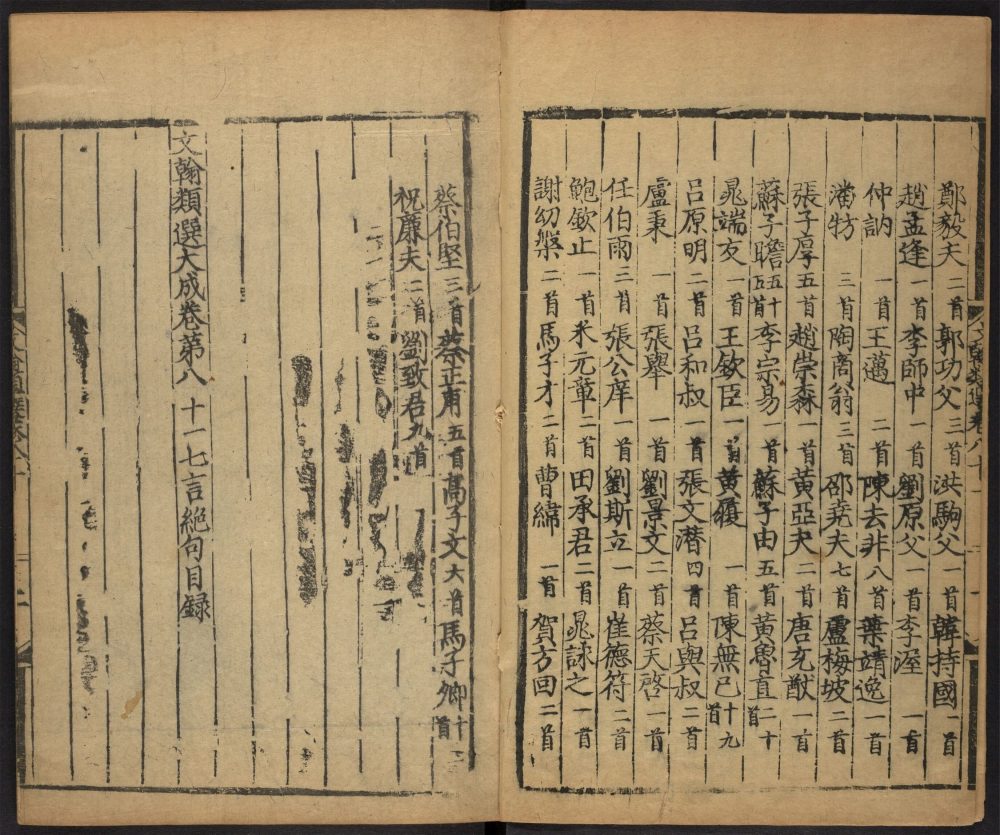 鄭毅夫二首郭功父三首洪駒父一首韓持國一首
趙孟逢一首李師中一首劉原父一首李渥一首
仲訥一首王邁二首陳去非八首葉靖逸一首
潘牥三首陶商翁三首邵堯夫七首盧梅坡二首
張子厚五首趙崇森一首黃亞夫二首唐充猷一首
蘇子瞻五十五首李宗易一首蘇子由五首黃魯直二十首
晁端友一首王欽臣一首黃履一首陳無已十九首
呂原明二首呂和叔一首張文潛四首呂與叔二首
盧秉一首張舉一首劉景文二首蔡天啓一首
任伯雨三首張公庠一首劉斯立一首崔德符二首
鮑欽止一首米元章二首田承君二首晁詠之一首
謝幼槃二首馬子才二首曹緯一首賀方回二首
文翰類選卷八十一
蔡伯堅三首蔡正甫五首高子文六首馬子卿十二首
祝廉夫二首劉致君九首
文翰類選大成卷第八十一七言絕句目録